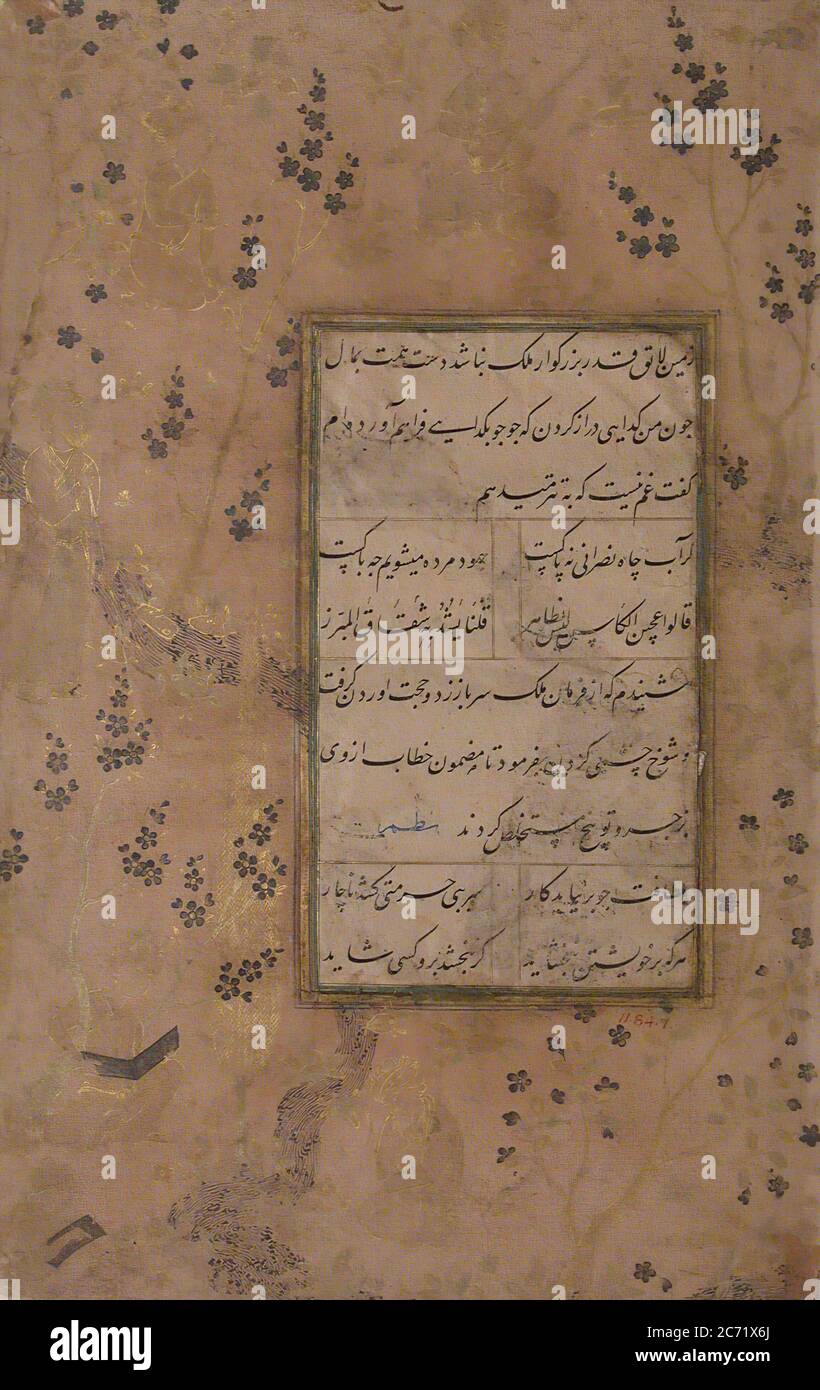 زمین لائق قدر بزرکوار ملک نباشد دست همت بمال
جون من کدایی دراز کردن که جو جو بکدایی فراهم آورده ام
کفت غم نیست که به تتر میدهم
کر آب چاه نصرانی نه پاکست جهود مرده میشویم جه باکست
قالوا عجین الکلس لیس بطاهر قلنا نسد به شقاق المبرز
شنیدم که از فرمان ملک سر باز زد و حجت اوردن کرفت
و شوخ چشمی کردن بفرمود تا مضمون خطاب از وی
بزجر و توبیخ مستخلص کردند نظم
بلطافت جو بر نیاید کار سر ببی حرمتی کشد ناچار
هرکه بر خویشتن نبخشاید کر نبخشد برو کسی شاید
11.84.7
alamy
Image ID: 2C71X6J
www.alamy.com